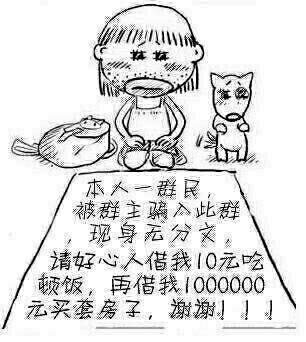 本人一群民，
被群主骗入此群
现身无分文，
请好心人借我10元吃
顿饭，再借我1000000
元买套房子，谢谢！！！